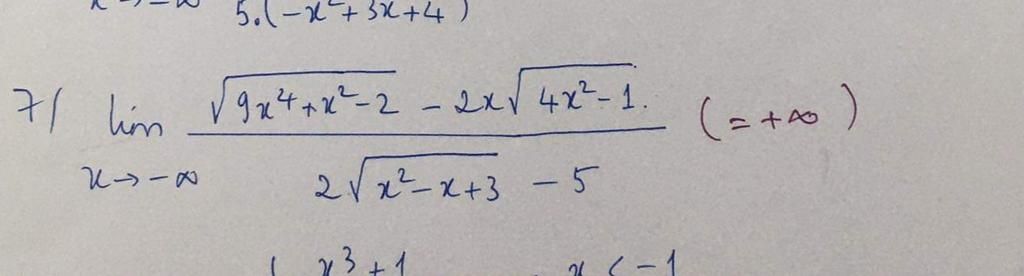 5.(-x²+3x+4)
7/ lim x→-∞ (√(9x⁴+x²-2) - 2x√(4x²-1)) / (2√(x²-x+3) - 5) (=+∞)
x³+1 x<-1